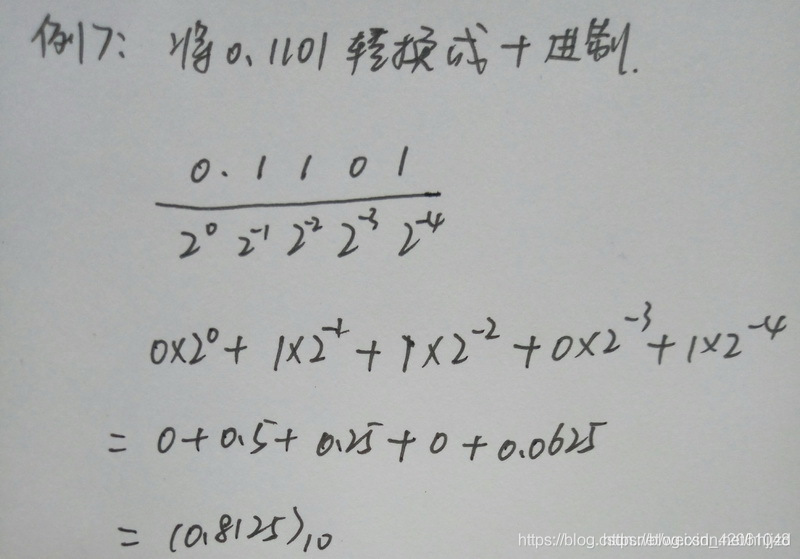 例17: 将0.1101转换成十进制.
0.1 1 0 1
2⁰ 2⁻¹ 2⁻² 2⁻³ 2⁻⁴
0×2⁰+1×2⁻¹+1×2⁻²+0×2⁻³+1×2⁻⁴
=0+0.5+0.25+0+0.0625
=(0.8125)₁₀